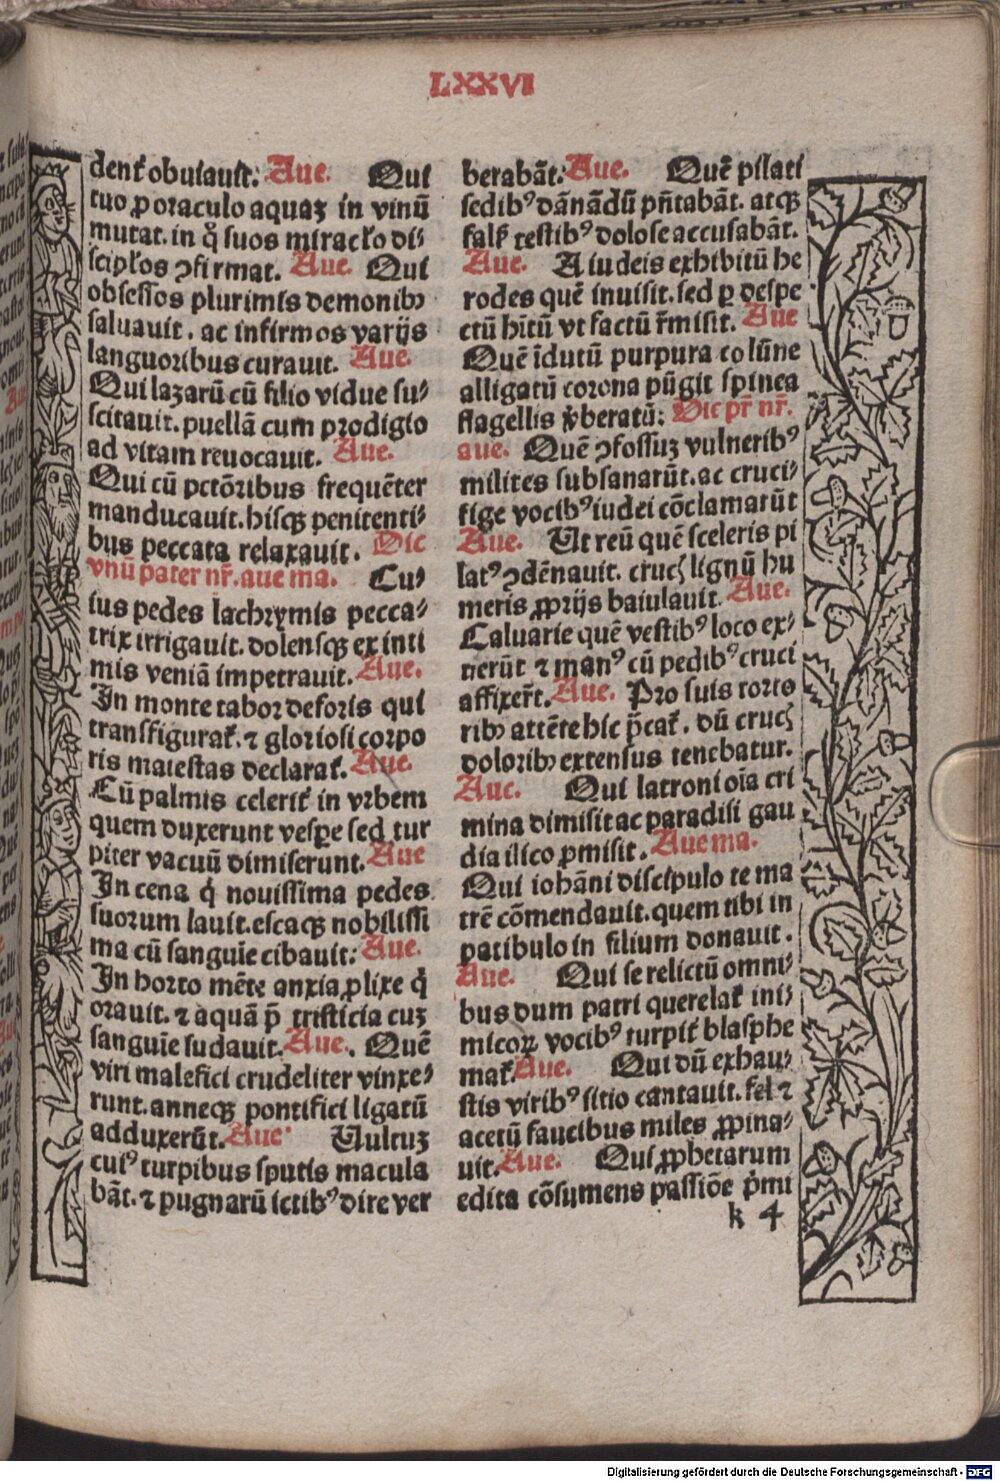 LXXVI
dent᷒ obuiauit. Aue. Qui
tuo ꝓ oraculo aquaꝫ in vinū
mutat. in q̊ suos miracło di⸗
scipłos ꝯfirmat. Aue. Qui
obsessos plurimis demonibꝫ
saluauit. ac infirmos varijs
languoribus curauit. Aue.
Qui lazarū cū filio vidue su⸗
scitauit. puellā cum prodigio
ad vitam reuocauit. Aue.
Qui cū pctōribus frequēter
manducauit. hisqꝫ penitenti⸗
bus peccata relaxauit. Dic
vnū pater nr̄. aue ma. Cu⸗
ius pedes lachrymis pecca⸗
trix irrigauit. dolensqꝫ ex inti
mis veniā impetrauit. Aue.
In monte tabor deforis qui
transfigurat᷒. ⁊ gloriosi corpo
ris maiestas declarat᷒. Aue.
Cū palmis celerit᷒ in vrbem
quem duxerunt vesꝑe sed tur
piter vacuū dimiserunt. Aue
In cena q̇ nouissima pedes
suorum lauit. escaqꝫ nobilissi
ma cū sanguīe cibauit: Aue.
In horto mēte anxia ꝓlixe q̇
orauit. ⁊ aquā p̄ tristicia cuꝫ
sanguīe sudauit. Aue. Quē
viri malefici crudeliter vinxe⸗
runt. anneqꝫ pontifici ligatū
adduxerūt. Aue Uultuꝫ
cuiꝰ turpibus sputis macula
bāt. ⁊ pugnarū ictibꝰ dire ver
berabāt. Aue. Quē pilati
sedibꝰ dānādū pn̄tabāt. atqꝫ
fals᷒ testibꝰ dolose accusabāt.
Aue. A iudeis exhibitū he
rodes quē inuisit. sed ꝑ despe
ctū hītū vt factū r̄misit. Aue
Quē īdutū purpura colūne
alligatū corona pūgit spinea
flagellis v̓beratū: Dic pr̄ nr̄.
aue. Quē ꝯfossuꝫ vulneribꝰ
milites subsanarūt. ac cruci⸗
fige vocibꝰ iudei cōclamarūt
Aue. Ut reū quē sceleris pi
latꝰ ꝯdēnauit. cruc᷒ lignū hu
meris ꝓprijs baiulauit. Aue.
Caluarie quē vestibꝰ loco ex⸗
uerūt ⁊ manꝰ cū pedibꝰ cruci
affixer̄t. Aue. Pro suis torto
ribꝫ attēte hic p̄cat᷒. dū cruc᷒
doloribꝫ extensus tenebatur.
Aue. Qui latroni oīa cri
mina dimisit ac paradisi gau
dia ilico ꝓmisit. Aue ma.
Qui iohāni discipulo te ma
trē cōmendauit. quem tibi in
patibulo in filium donauit.
Aue. Qui se relictū omni⸗
bus dum patri querelat᷒ ini⸗
micoꝝ vocibꝰ turpit᷒ blasphe
mat᷒. Aue. Qui dū exhau⸗
stis viribꝰ sitio cantauit. fel ⁊
acetū faucibus miles ꝓpina⸗
uit. Aue. Qui ꝓphetarum
edita cōsumens passiōe p̓mi
k 4
Digitalisierung gefördert durch die Deutsche Forschungsgemeinschaft - DFG